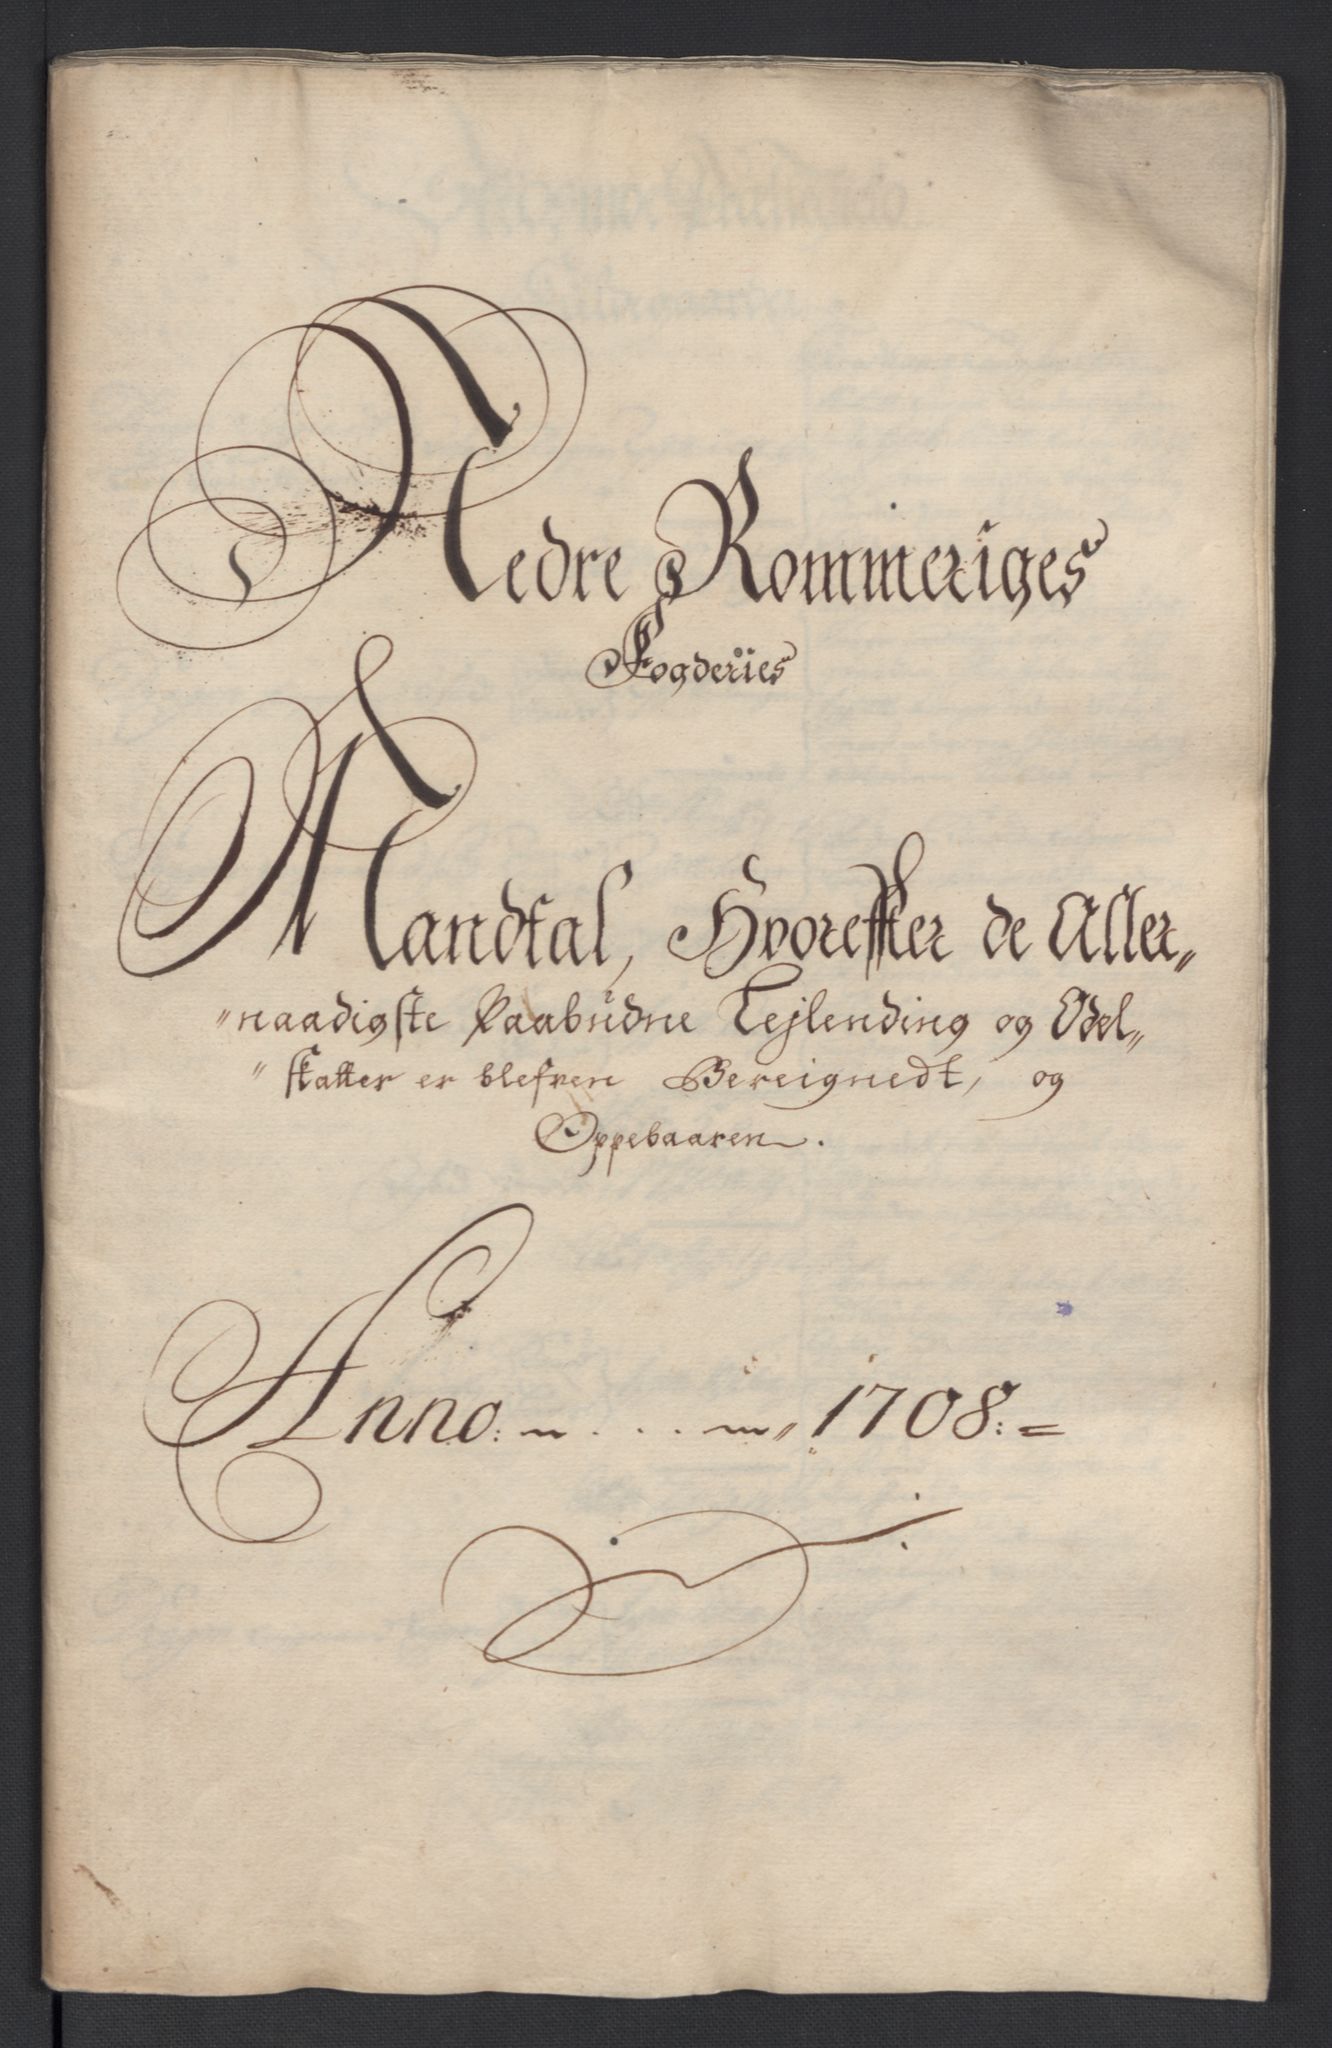 Nedre Rommeriges
Fogderiies
Mandtal, Hvoreffter de Aller„
„naadigste Paabudne Lejlending og Odel„
„skatter er blefven Bereignedt, og
Oppebaaren.
Anno: 1708:=